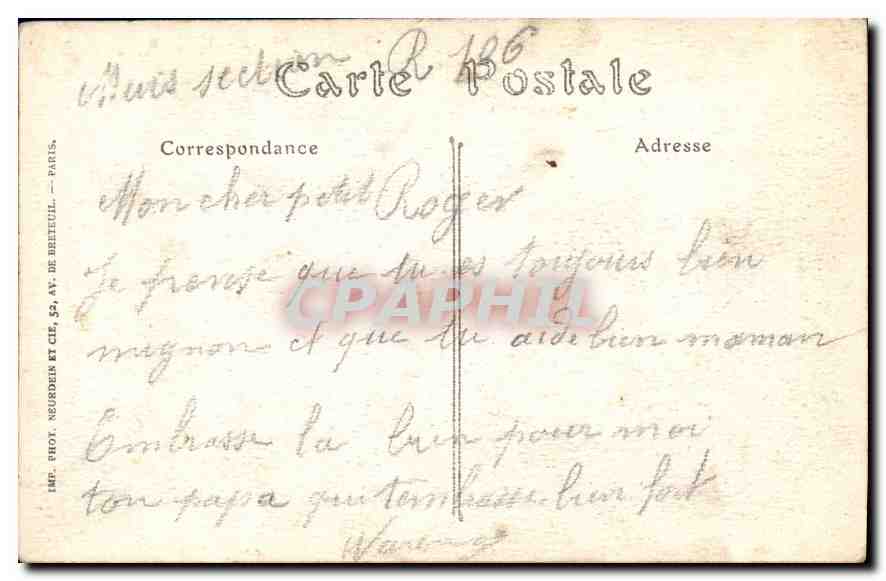 section R 106
Carte Postale
Correspondance
Adresse
Mon cher petit Roger
Je pense que tu es toujours bien
mignon et que tu aide bien maman
Embrasse la bien pour moi
ton papa qui t'embrasse bien fort
IMP. PHOT. NEURDEIN ET CIE, 52, AV. DE BRETEUIL. — PARIS.
CPAPHIL